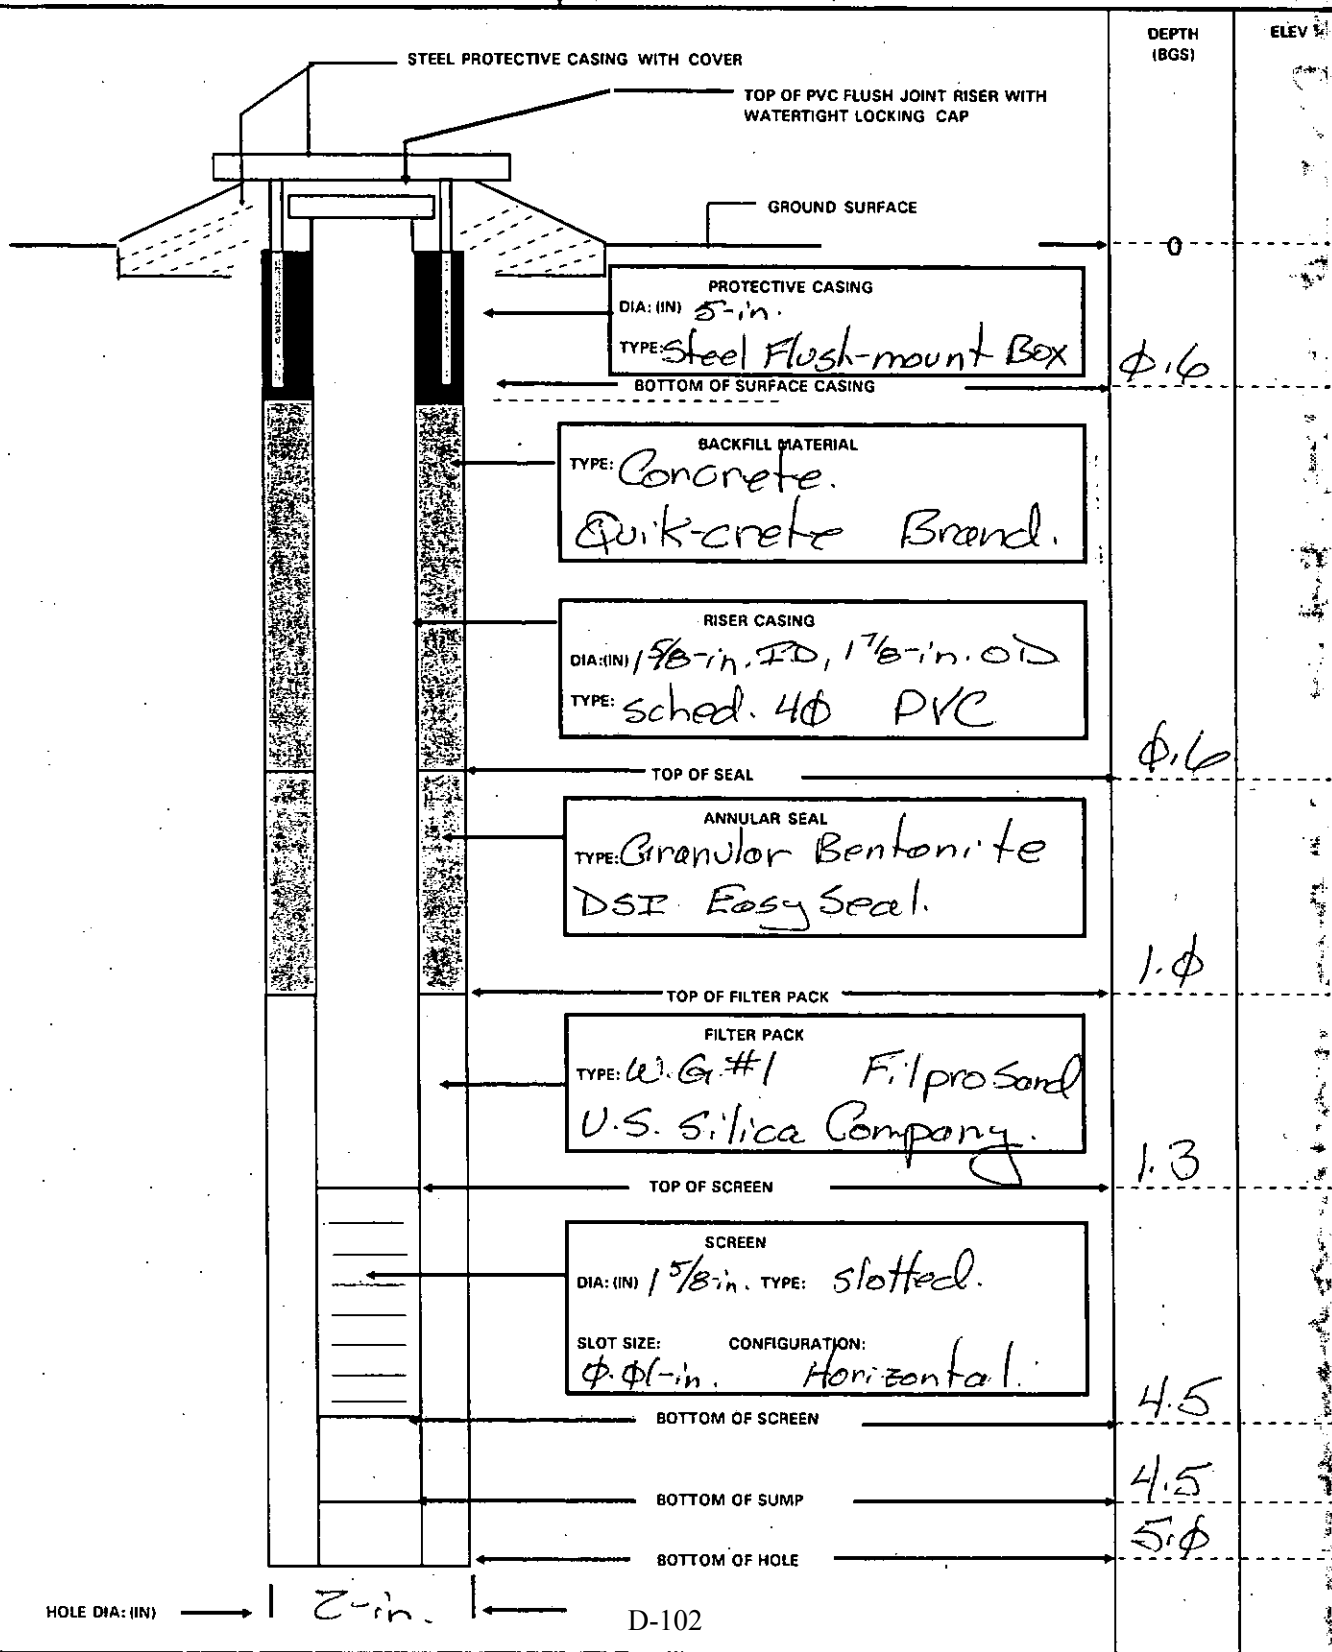 DEPTH
(BGS)
ELEV
STEEL PROTECTIVE CASING WITH COVER
TOP OF PVC FLUSH JOINT RISER WITH
WATERTIGHT LOCKING CAP
GROUND SURFACE
0
PROTECTIVE CASING
DIA: (IN) 5-in.
TYPE: Steel Flush-mount Box
BOTTOM OF SURFACE CASING
0.6
BACKFILL MATERIAL
TYPE: Concrete.
Quik-crete Brand.
RISER CASING
DIA:(IN) 1 5/8-in. ID, 1 7/8-in. OD
TYPE: sched. 40 PVC
TOP OF SEAL
0.6
ANNULAR SEAL
TYPE: Granular Bentonite
DSI Easy Seal.
TOP OF FILTER PACK
1.0
FILTER PACK
TYPE: W.G. #1 Filpro Sand
U.S. Silica Company.
TOP OF SCREEN
1.3
SCREEN
DIA: (IN) 1 5/8-in. TYPE: slotted.
SLOT SIZE: CONFIGURATION:
0.01-in. Horizontal.
BOTTOM OF SCREEN
4.5
BOTTOM OF SUMP
4.5
BOTTOM OF HOLE
5.0
HOLE DIA: (IN) 2-in.
D-102